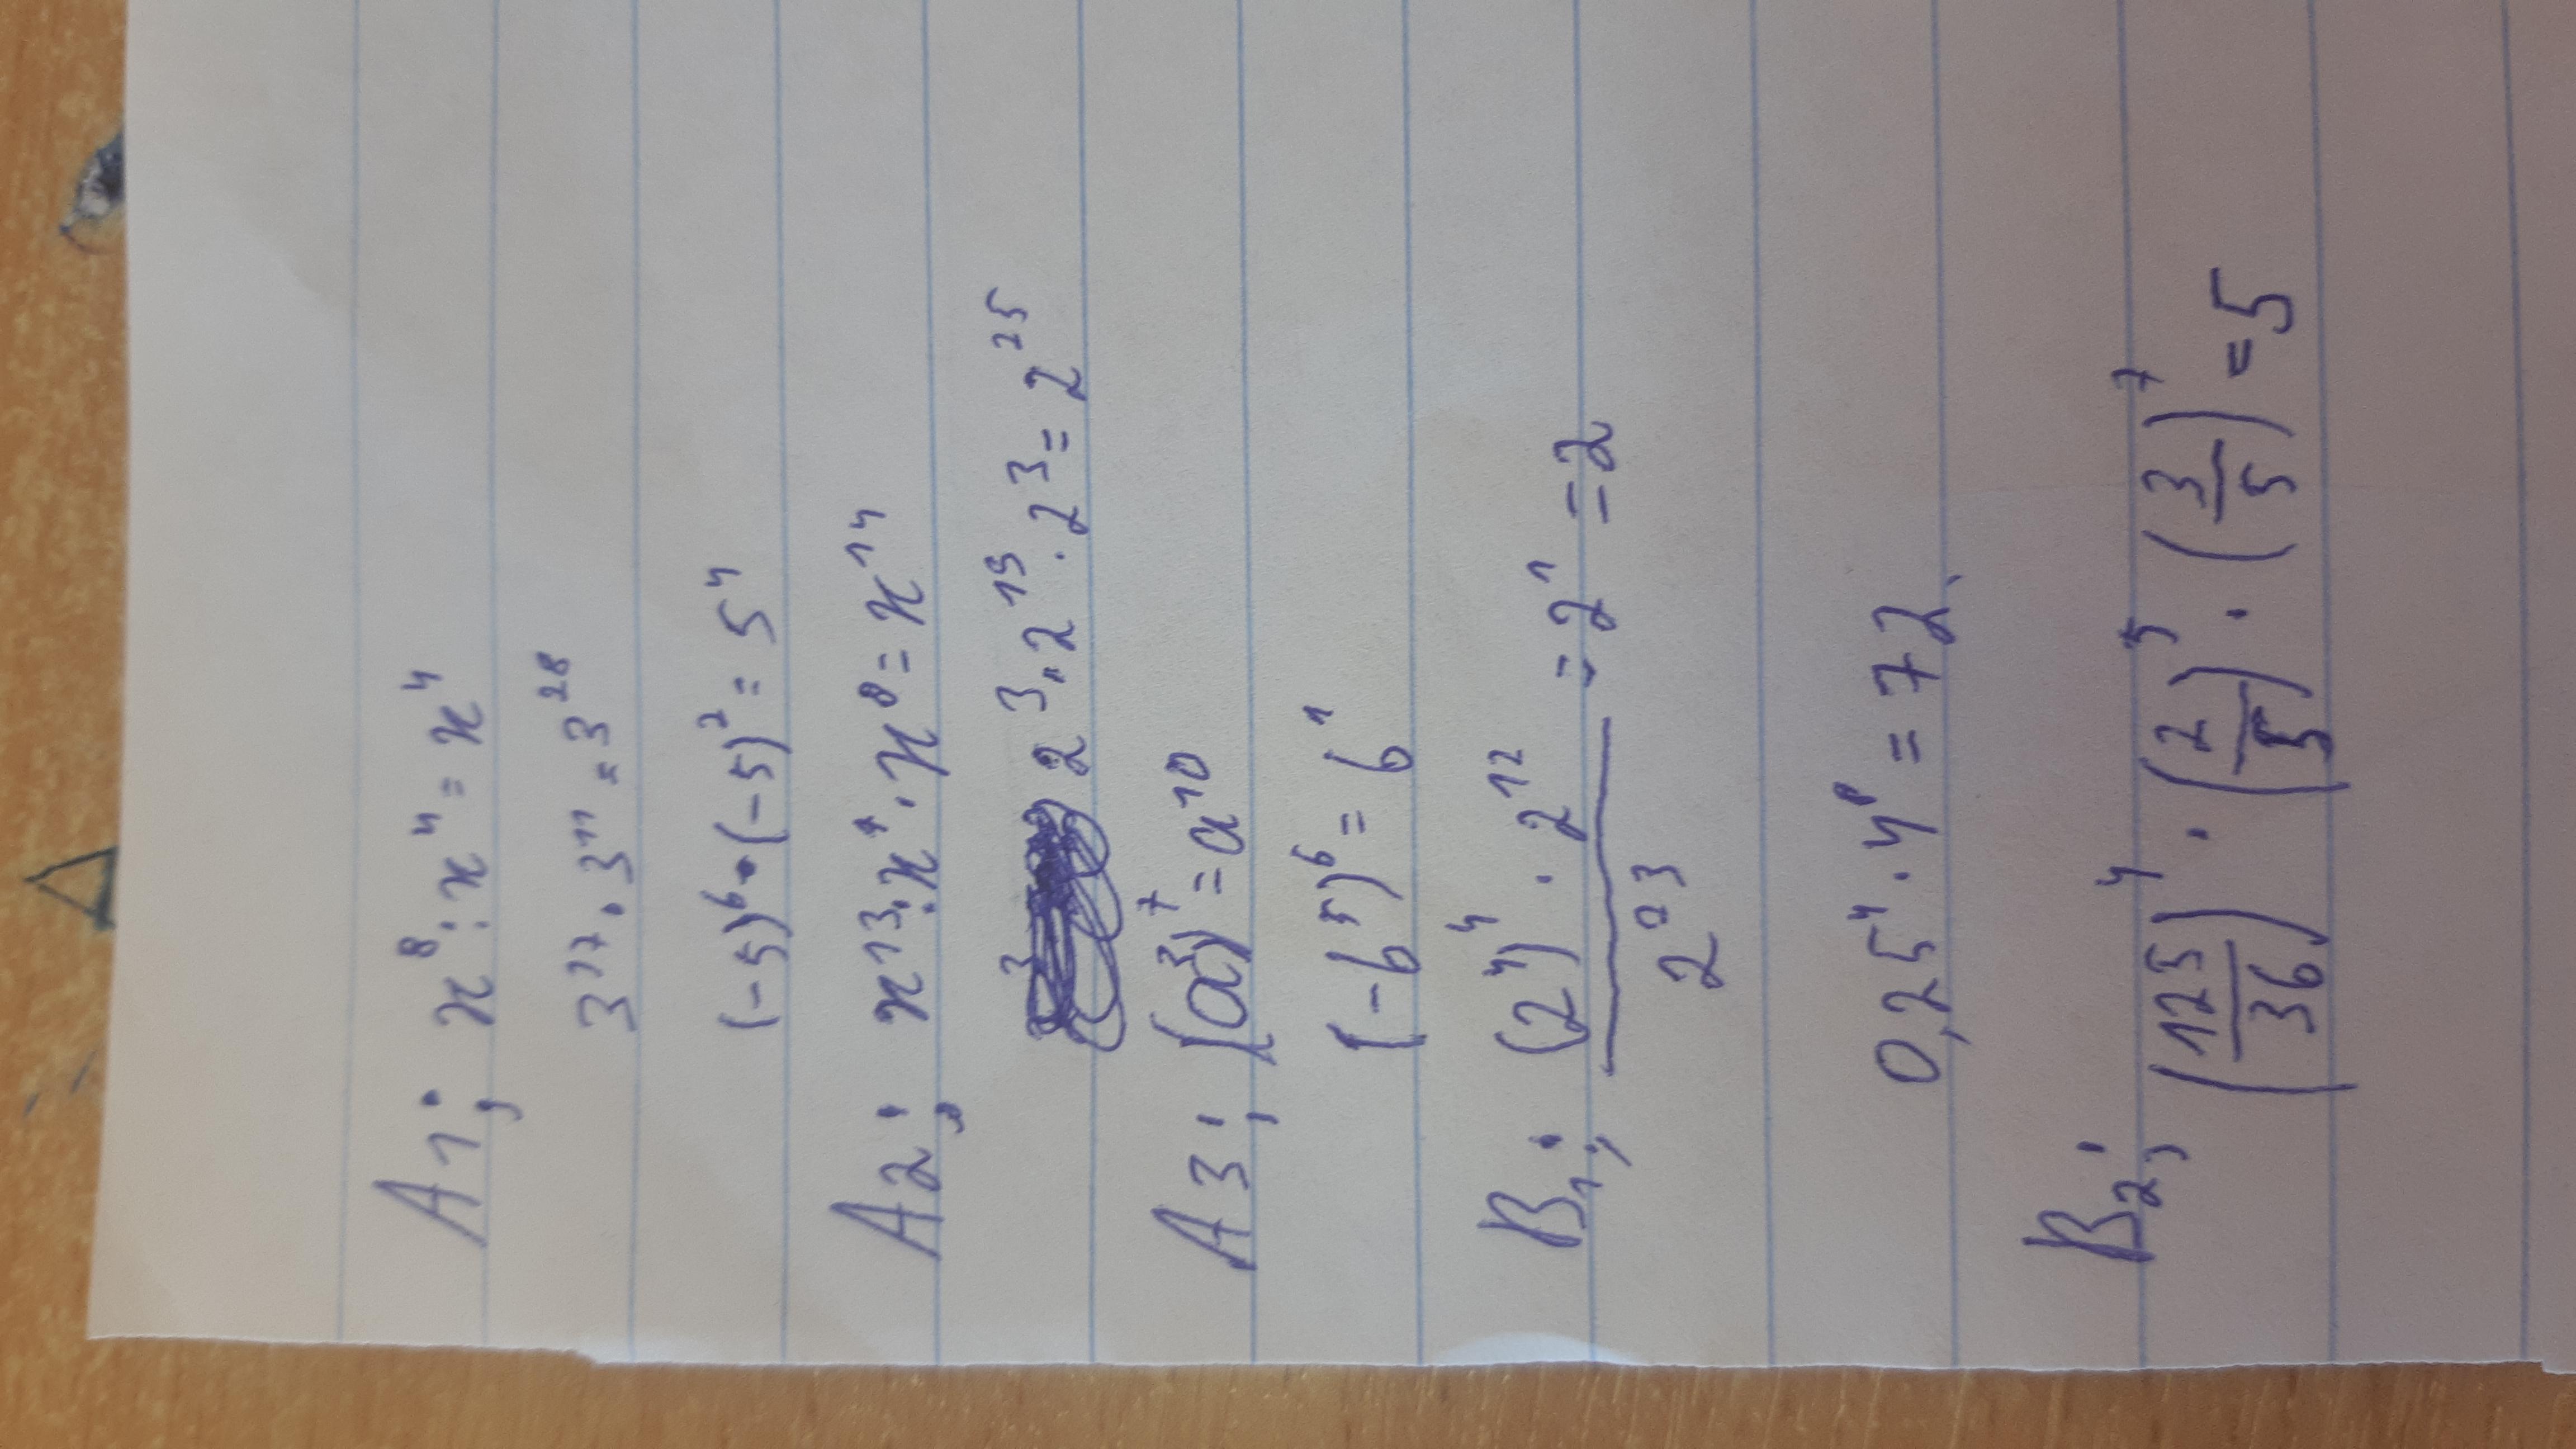 A1; x⁸ : x⁴ = x⁴
3¹⁷ · 3¹¹ = 3²⁸
(-5)⁶ · (-5)² = 5⁴
A2; x¹³ : x⁹ · x⁸ = x¹⁴
2³ · 2¹⁹ · 2³ = 2²⁵
A3; (a³)⁷ = a¹⁰
(-6⁵)⁶ = 6¹
B1; (2⁴)⁴ · 2¹² / 2⁰³ = 2¹ = 2
0,25⁴ · 4⁸ = 72
B2; (125/36)⁴ · (2/5)⁵ · (3/5)⁷ = 5